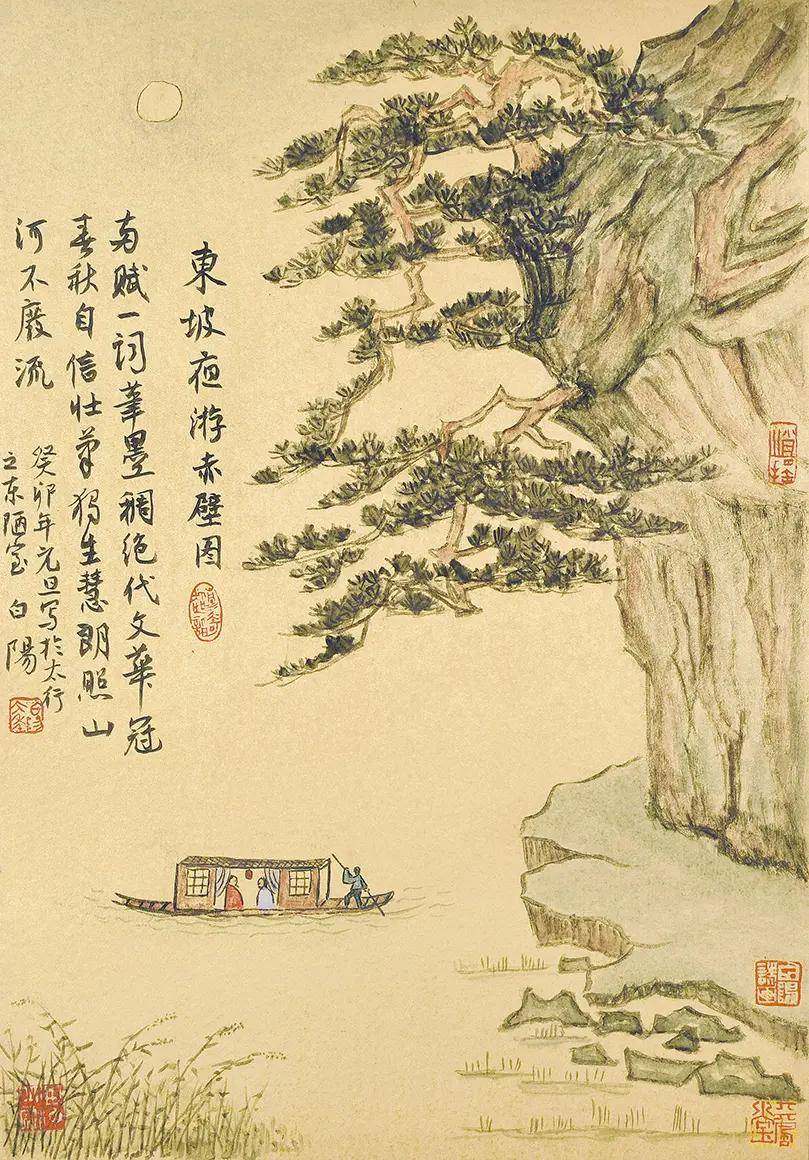 東坡夜游赤壁图
两赋一词筆墨稠绝代文華冠
春秋自信壮生慧朗照山
河不废流
癸卯年元旦写於太行
之东陋室 白陽